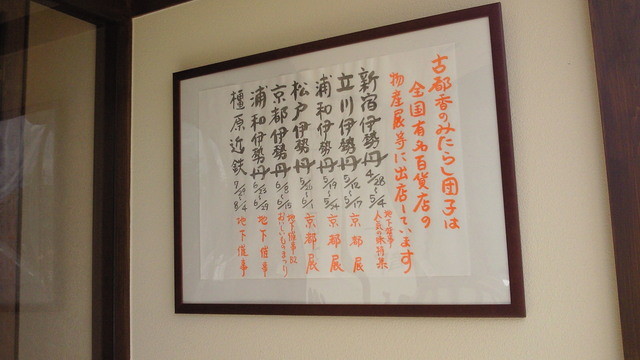 古都香のみたらし団子は
全国有名百貨店の
物産展等に出店しています
新宿伊勢丹 4/28~5/4 地下催事
立川伊勢丹 5/12~5/17 京都展
浦和伊勢丹 5/19~5/24 京都展
松戸伊勢丹 京都展
京都伊勢丹 6/8~6/15 地下催事
浦和伊勢丹 6/23~6/29 地下催事
橿原近鉄 地下催事